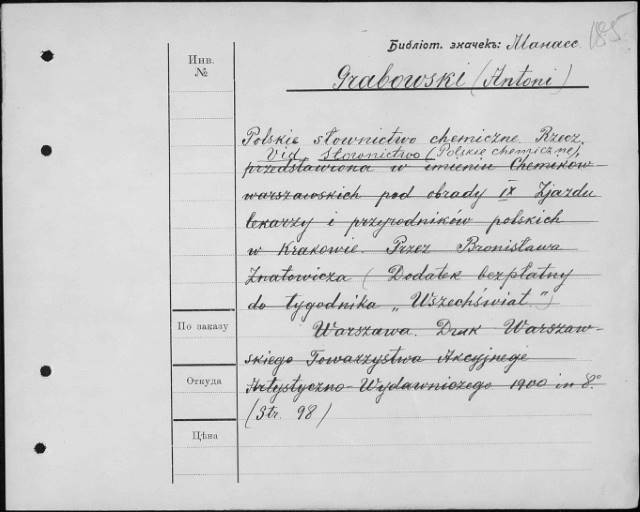 185
Библіот. значекъ: Манасс.
Инв.
№
Grabowski (Antoni)
Polskie słownictwo chemiczne. Rzecz
Vid. Słownictwo (Polskie chemiczne)
przedstawiona w imieniu Chemików
warszawskich pod obrady IX Zjazdu
lekarzy i przyrodników polskich
w Krakowie. Przez Bronisława
Znatowicza (Dodatek bezpłatny
do tygodnika „Wszechświat")
Warszawa. Druk Warszaw-
По заказу
skiego Towarzystwa Akcyjnego
Откуда
Artystyczno-Wydawniczego 1900 in 8.º
(Str. 98)
Цѣна